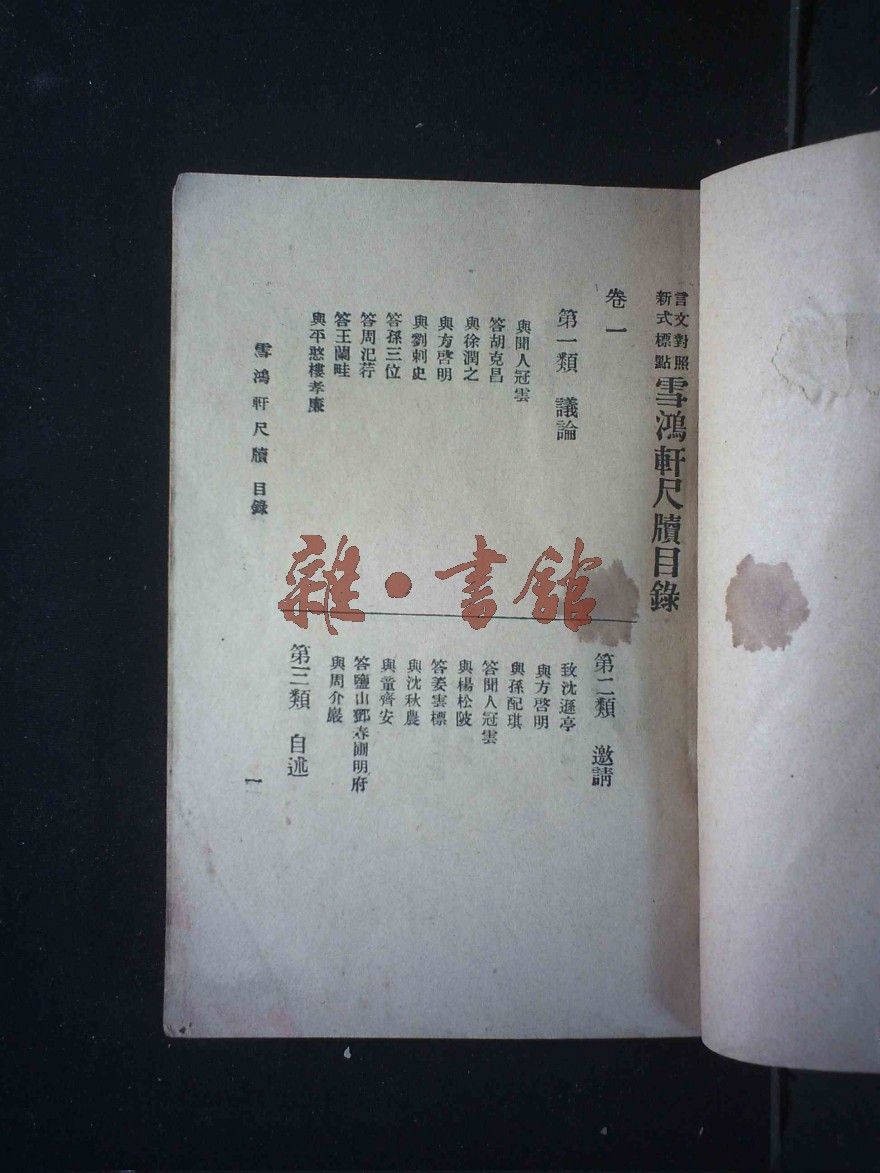 言文對照
新式標點
雪鴻軒尺牘目錄
卷一
第一類 議論
與聞人冠雲
答胡克昌
與徐潤之
與方啓明
與劉刺史
答孫三位
答周汜荇
答王蘭畦
與平憨樓孝廉
第二類 邀請
致沈遜亭
與方啓明
與孫配琪
答聞人冠雲
與楊松陂
答姜雲標
與沈秋農
與董齊安
答鹽山鄧春圃明府
與周介巖
第三類 自述
雪鴻軒尺牘 目錄
一
雜·書館